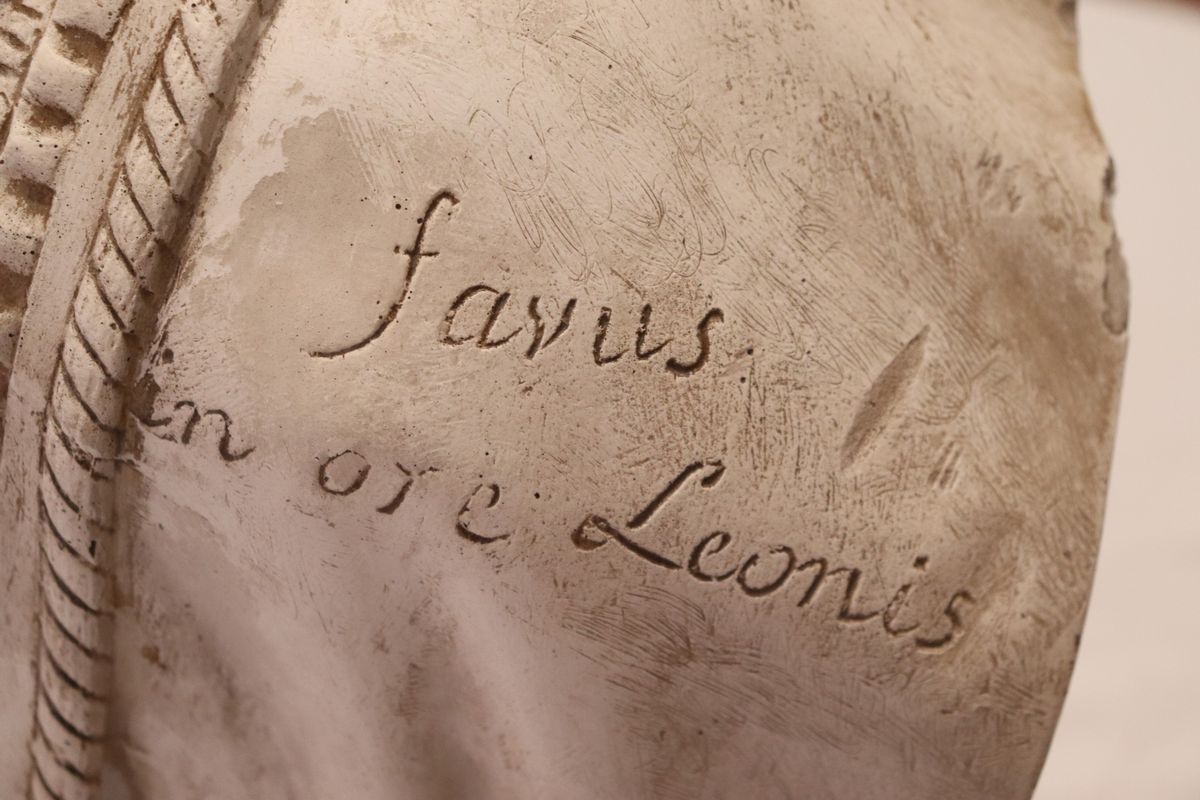 favus.
in ore Leonis